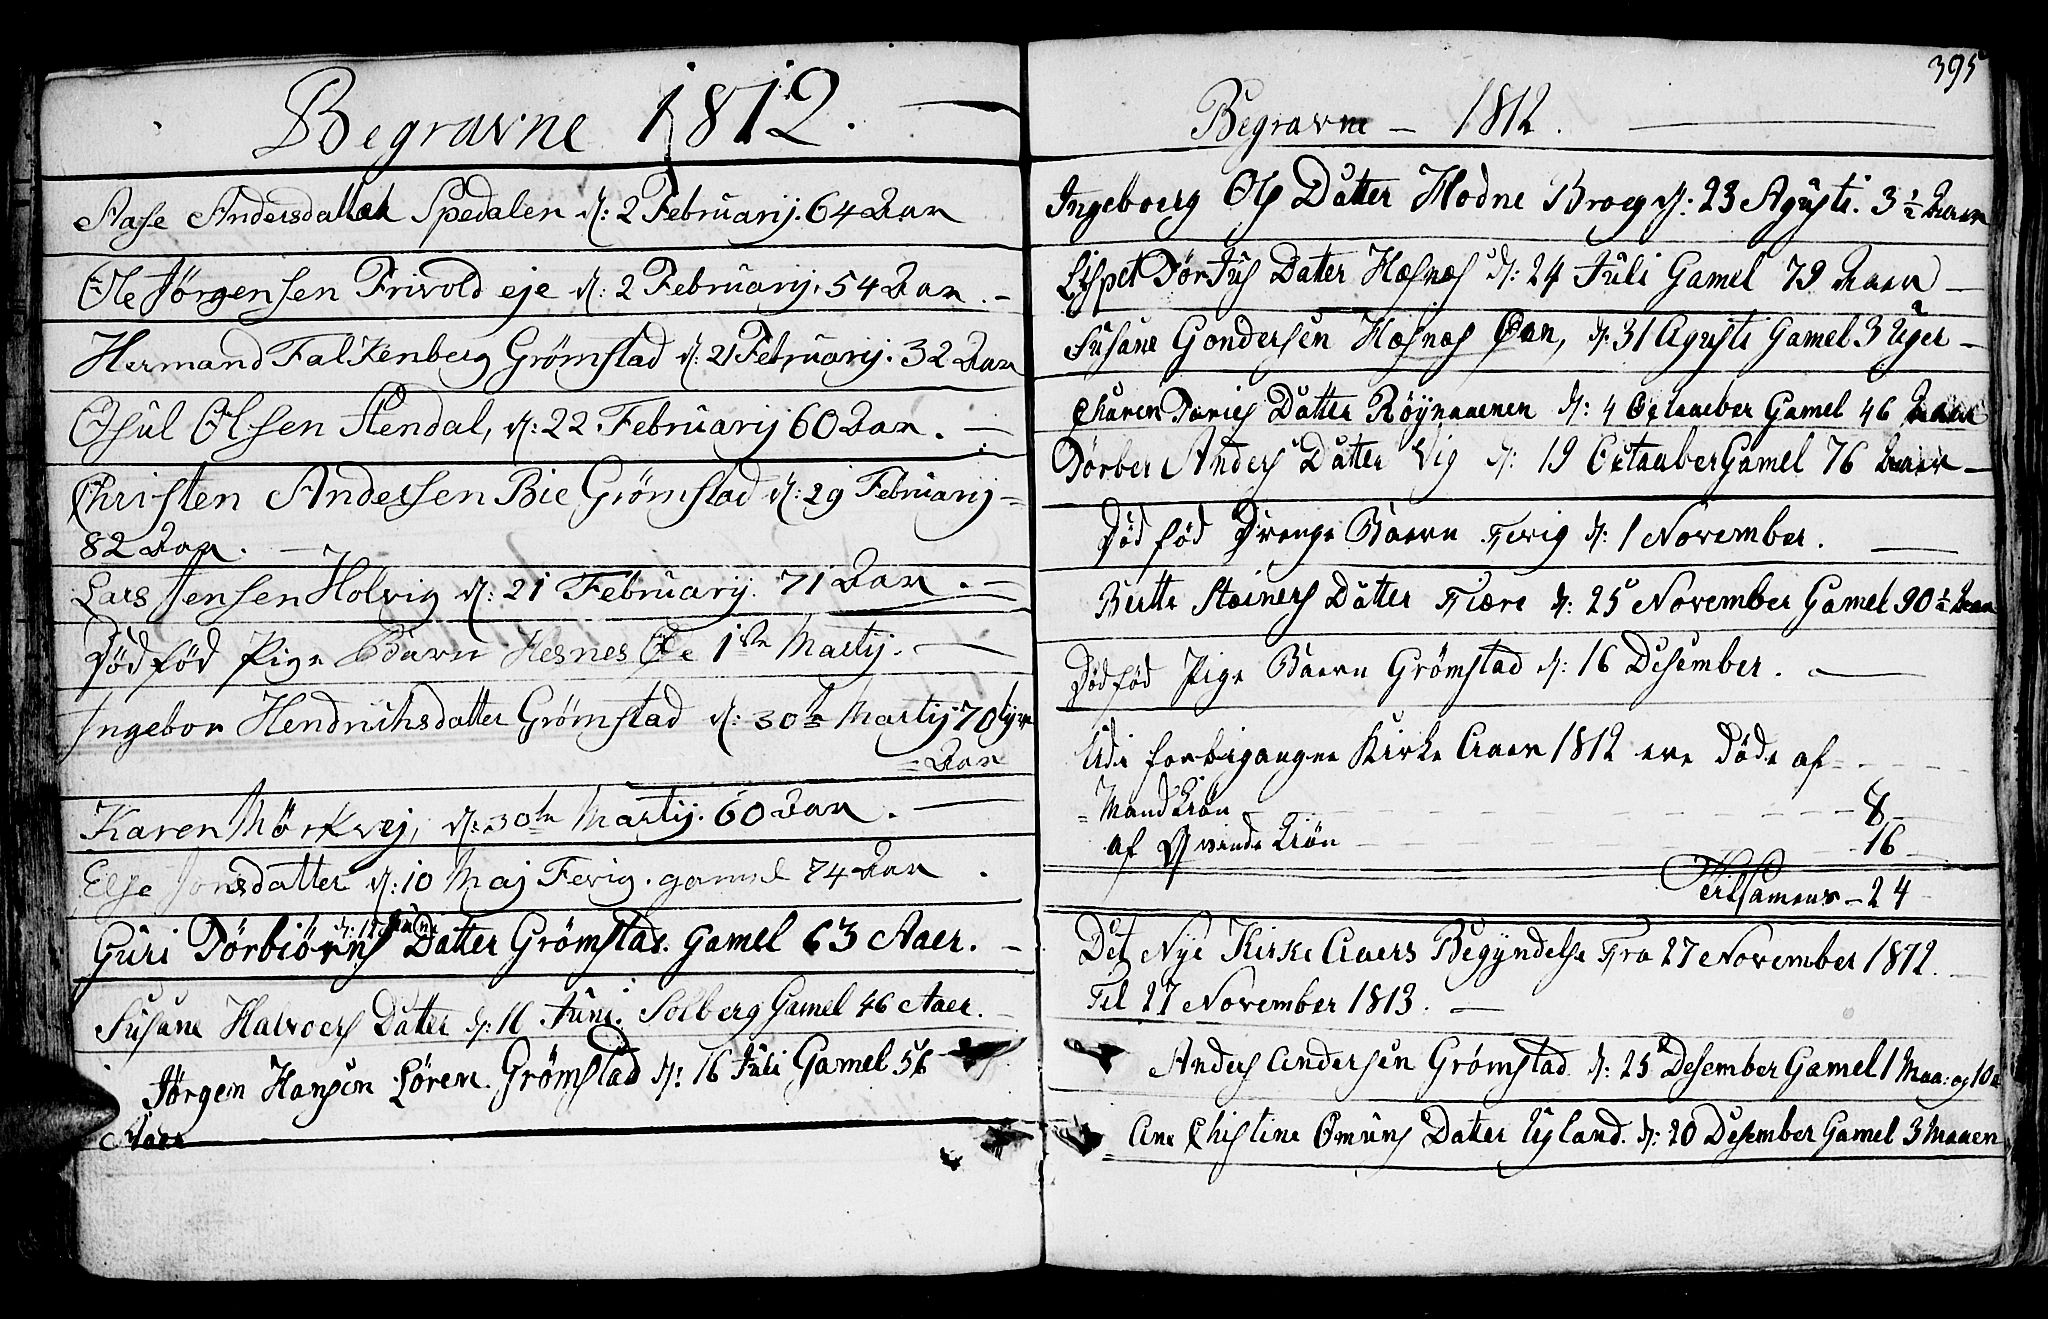 Begravne 1812.
Aase Andersdatter Spedalen d: 2 Februarij. 64 Aar
Ole Jörgensen Frivold eje d: 2 Februarij. 54 Aar. –
Hermand Falkenberg Grömstad d: 21 Februarij. 32 Aar
Osul Olsen Stendal, d: 22 Februarij 60 Aar. –
Christen Andersen Bie Grömstad d: 29 Februarij =
82 Aar. –
Lars Jensen Holvig d: 21 Februarij. 71 Aar. –
Död föd Pige Barn Hesnes Öe 1ste Martij. –
Ingebor Hendrichsdatter Grömstad d: 30te Martij 70tyve
= Aar
Karen Mörkvej, d: 30te Martij. 60 Aar. –
Else Jonsdatter d: 10 Maj Fevig. gamel 74 Aar.
d: 12 Juni
Guri Dörbiörns Datter Grömstad. Gamel 63 Aaer. –
Susane Halvoers Datter d: 11 Juni. Solberg Gamel 46 Aaer.
Jörgen Hansen Lören. Grömstad d: 16 Juli Gamel 56
Aaer
395
Begravne – 1812. –
Ingeboerg Ols Datter Modne Broeg d: 23 Agusti. 3 ½ Aaer
Lispet Dortus Datter Hæsnæs d: 24 Juli Gamel 79 Aaer –
Susane Gondersen Hæsnæs Öen, d: 31 Agusti Gamel 3 Uger –
Charen Daries Datter Röynaaenen d: 4 Octaueber Gamel 46 Aaer
Dörber Anders Datter Vig d: 19 Octauber Gamel 76 Aaer –
Död föd Drenge Baern Fevig d: 1 November. –
Berthe Steiners Datter Fiære d: 25 November Gamel 90 ½ Aar
Död föd Pige Baern Grömstad d: 16 Desember. –
Udi forbigangne Kirke Aaer 1812 ere Döde af
= Mand Kiön – 8
af Qvinde Kiön – 16
Tilsamens – 24
Det Nye Kirke Aaers Begyndelse Fra 27 November 1812.
Til 27 November 1813. –
Anders Andersen Grömstad d: 25 Desember Gamel 1 Maa: og 10
Ane Christine Omuns Datter Ugland. d: 20 Desember Gamel 3 Maaen